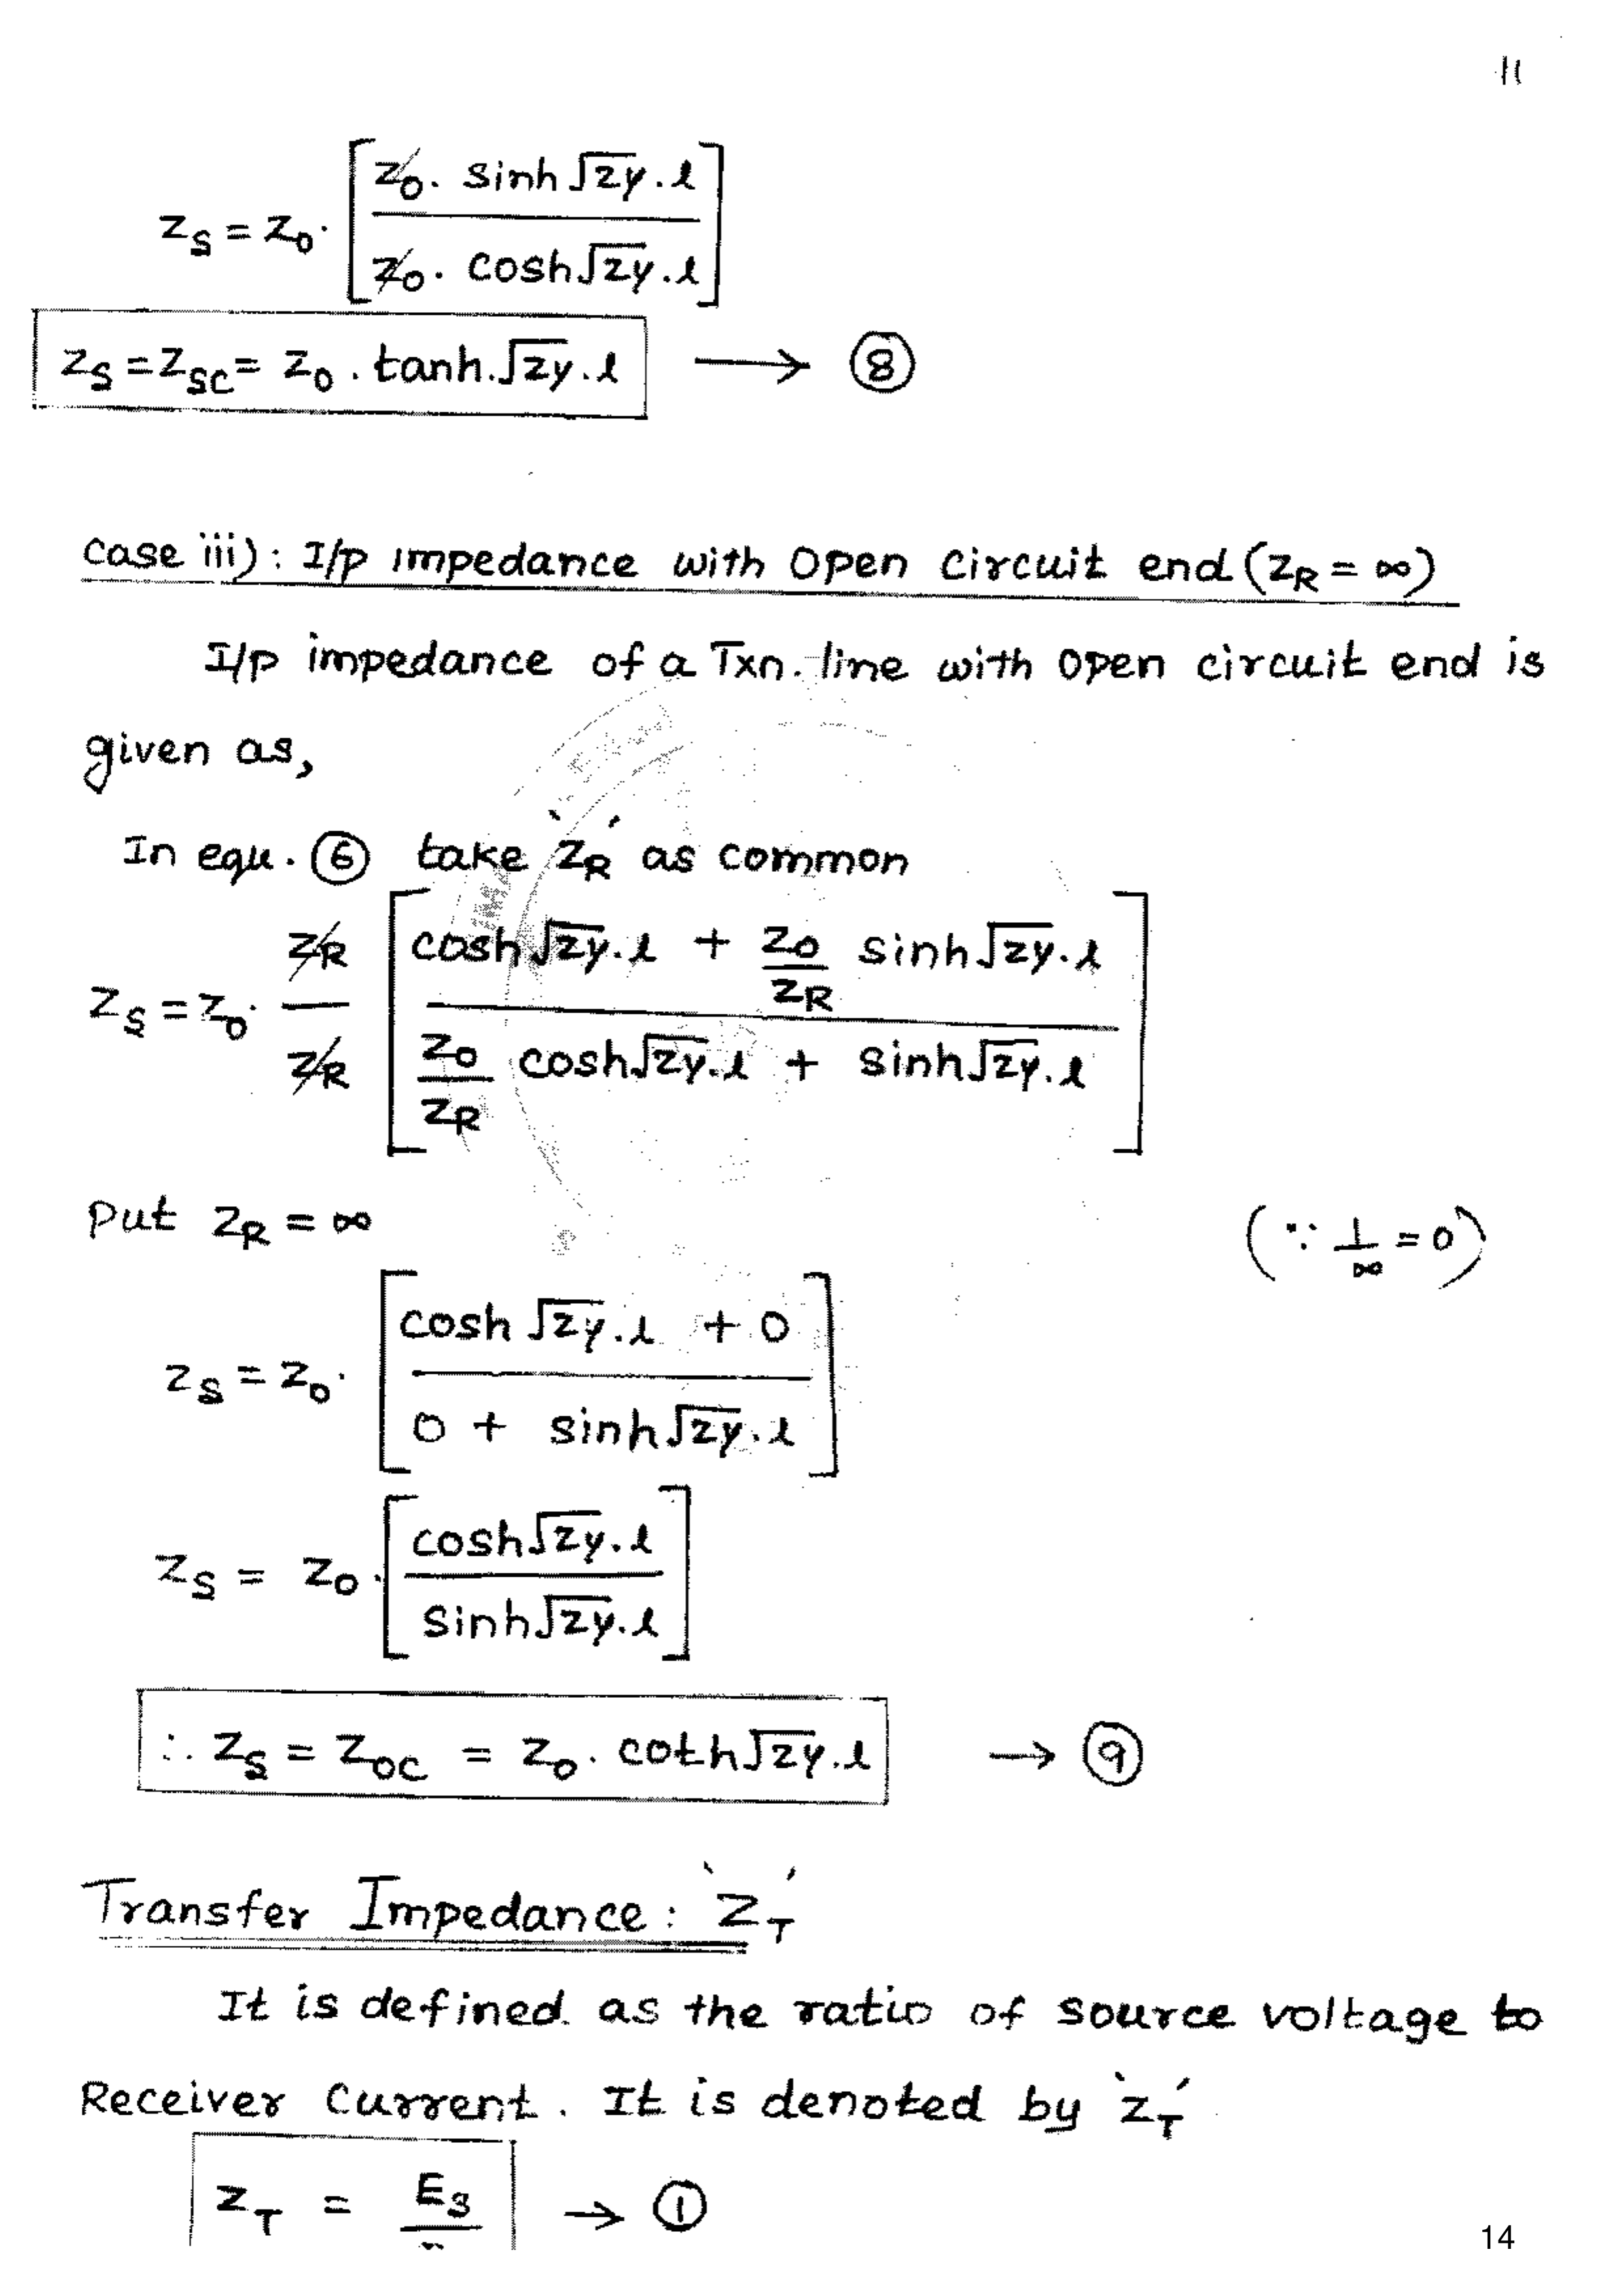 11
Z_S = Z_0 . [ Z_0 . sinh √zy . l / Z_0 . cosh √zy . l ]
Z_S = Z_SC = Z_0 . tanh . √zy . l → ⑧
Case iii) : I/p impedance with Open Circuit end (Z_R = ∞)
I/p impedance of a Txn. line with open circuit end is
given as,
In equ. ⑥ take 'Z_R' as common
Z_S = Z_0 . Z_R / Z_R [ cosh √zy . l + Z_0 / Z_R sinh √zy . l / Z_0 / Z_R cosh √zy . l + sinh √zy . l ]
Put Z_R = ∞ (∵ 1/∞ = 0)
Z_S = Z_0 . [ cosh √zy . l + 0 / 0 + sinh √zy . l ]
Z_S = Z_0 . [ cosh √zy . l / sinh √zy . l ]
∴ Z_S = Z_OC = Z_0 . coth √zy . l → ⑨
Transfer Impedance : 'Z_T'
It is defined as the ratio of source voltage to
Receiver Current . It is denoted by 'Z_T'
Z_T = E_S → ①
14